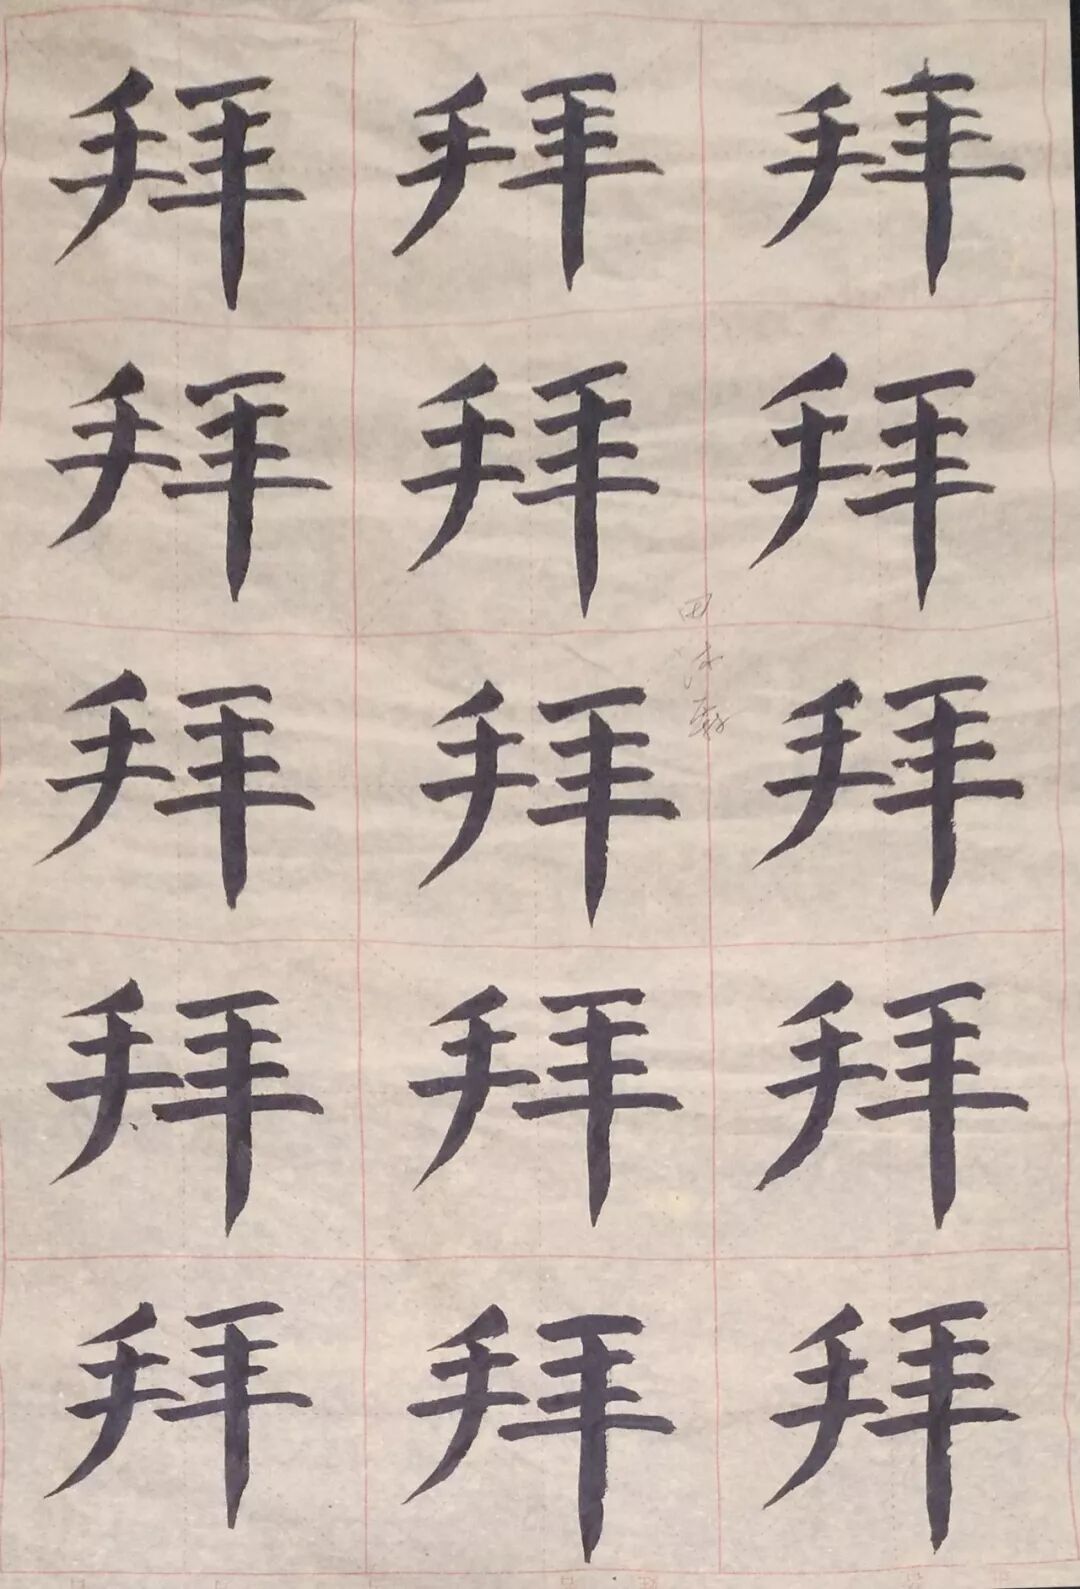 拜拜拜
拜拜拜
拜拜拜
拜拜拜
拜拜拜